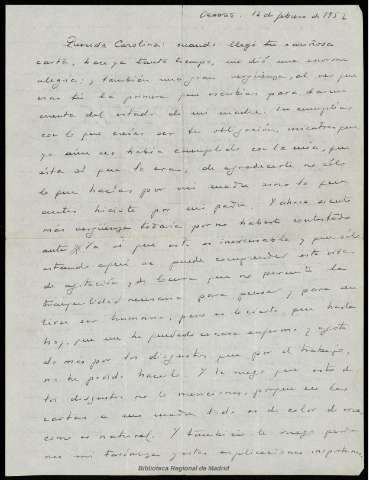 16 de febrero de 195
Querida Carolina: cuando llegó tu cariñosa
carta, hace ya tanto tiempo, me dió una enorme
alegría; y también una gran vergüenza, al ver que
eras tú la primera que escribías para darme
cuenta del estado de mi madre. Tú cumplías
con lo que creías ser tu obligación, mientras que
yo aún no había cumplido con la mía, que
ésta sí que lo era, de agradecerte no sólo
lo que hacías por mi madre sino lo que
antes hiciste por mi padre. Y ahora siento
más vergüenza todavía por no haberte contestado
antes. Ya sé que esto es inexcusable y que sólo
estando aquí se puede comprender esta vida
de agitación y de locura que no permite la
tranquilidad necesaria para pensar y para
ser humano, pero es lo cierto que hasta
hoy, que me he quedado en casa enfermo y agotado
más por los disgustos que por el trabajo,
no he podido hacerlo. Y te ruego que esto de
los disgustos no lo menciones, porque en las
cartas a mi madre todo es de color de rosa,
como es natural. Y también te ruego
mi tardanza y estas explicaciones
Biblioteca Regional de Madrid